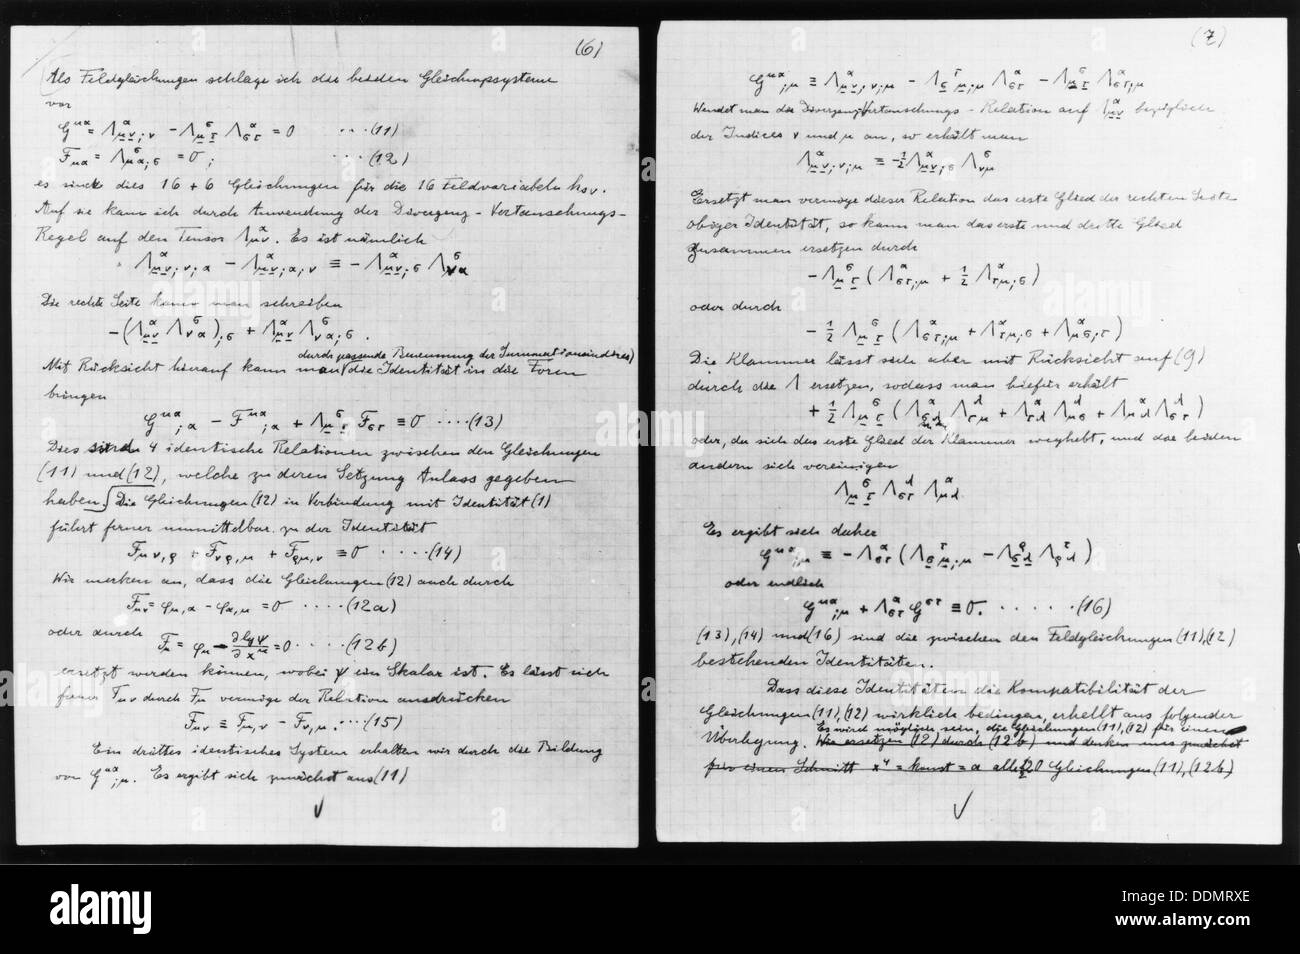 (6)
Als Feldgleichungen schlage ich die beiden Gleichungssysteme
vor
G^{μα} = Λ^α_{μν;ν} − Λ^σ_{μτ} Λ^α_{στ} = 0 ...(11)
F_{μα} = Λ^σ_{μα;σ} = 0; ...(12)
es sind dies 16 + 6 Gleichungen für die 16 Feldvariabeln hsν.
Auf sie kann ich durch Anwendung der Divergenz-Vertauschungs-
Regel auf den Tensor Λ^α_{μν}. Es ist nämlich
Λ^α_{μν;ν;α} − Λ^α_{μν;α;ν} ≡ − Λ^α_{μν;σ} Λ^σ_{να}
Die rechte Seite kann man schreiben
−(Λ^α_{μν} Λ^σ_{να})_{;σ} + Λ^α_{μν} Λ^σ_{να;σ}.
durch passende Benennung der Summationsindices)
Mit Rücksicht hierauf kann man (die Identität in die Form
bringen
G^{μα}_{;α} − F^{μα}_{;α} + Λ^σ_{μτ} F_{στ} ≡ 0 ....(13)
Dies sind 4 identische Relationen zwischen den Gleichungen
(11) und (12), welche zu deren Setzung Anlass gegeben
haben. Die Gleichungen (12) in Verbindung mit Identität (1)
führt ferner unmittelbar zu der Identität
F_{μν,ρ} + F_{νρ,μ} + F_{ρμ,ν} ≡ 0 ....(14)
Wir merken an, dass die Gleichungen (12) auch durch
F_{μν} = φ_{μ,α} − φ_{α,μ} = 0 ....(12a)
oder durch F_μ = φ_μ − ∂lgψ/∂x^μ = 0 ....(12b)
ersetzt werden können, wobei ψ ein Skalar ist. Es lässt sich
ferner F_{μν} durch F_μ vermöge der Relation ausdrücken
F_{μν} ≡ F_{μ,ν} − F_{ν,μ}. ...(15)
Ein drittes identisches System erhalten wir durch die Bildung
von G^{μα}_{;μ}. Es ergibt sich zunächst aus (11)
(7)
G^{μα}_{;μ} ≡ Λ^α_{μν;ν;μ} − Λ^τ_{σμ;μ} Λ^α_{στ} − Λ^σ_{μτ} Λ^α_{στ;μ}
Wendet man die Divergenz-Vertauschungs-Relation auf Λ^α_{μν} bezüglich
der Indices ν und μ an, so erhält man
Λ^α_{μν;ν;μ} ≡ −½ Λ^α_{μν;σ} Λ^σ_{νμ}
Ersetzt man vermöge dieser Relation das erste Glied der rechten Seite
obiger Identität, so kann man das erste und dritte Glied
zusammen ersetzen durch
− Λ^σ_{μτ} (Λ^α_{στ;μ} + ½ Λ^α_{τμ;σ})
oder durch
− ½ Λ^σ_{μτ} (Λ^α_{στ;μ} + Λ^α_{τμ;σ} + Λ^α_{μσ;τ})
Die Klammer lässt sich aber mit Rücksicht auf (9)
durch die Λ ersetzen, sodass man hiefür erhält
+ ½ Λ^σ_{μτ} (Λ^α_{σλ} Λ^λ_{τμ} + Λ^α_{τλ} Λ^λ_{μσ} + Λ^α_{μλ} Λ^λ_{στ})
oder, da sich das erste Glied der Klammer weghebt, und die beiden
andern sich vereinigen
Λ^σ_{μτ} Λ^λ_{στ} Λ^α_{μλ}.
Es ergibt sich daher
G^{μα}_{;μ} ≡ − Λ^α_{στ} (Λ^τ_{σμ;μ} − Λ^ρ_{σλ} Λ^τ_{ρλ})
oder endlich
G^{μα}_{;μ} + Λ^α_{στ} G^{στ} ≡ 0. .....(16)
(13), (14) und (16) sind die zwischen den Feldgleichungen (11), (12)
bestehenden Identitäten.
Dass diese Identitäten die Kompatibilität der
Gleichungen (11), (12) wirklich bedingen, erhellt aus folgender
Es wird möglich sein, die Gleichungen (11), (12) für einen
Überlegung. Wir ersetzen (12) durch (12b) und denken uns zunächst
für einen Schnitt x⁴ = konst = a alle 20 Gleichungen (11), (12b)
alamy
alamy
alamy
alamy
DDMRXE
www.alamy.com